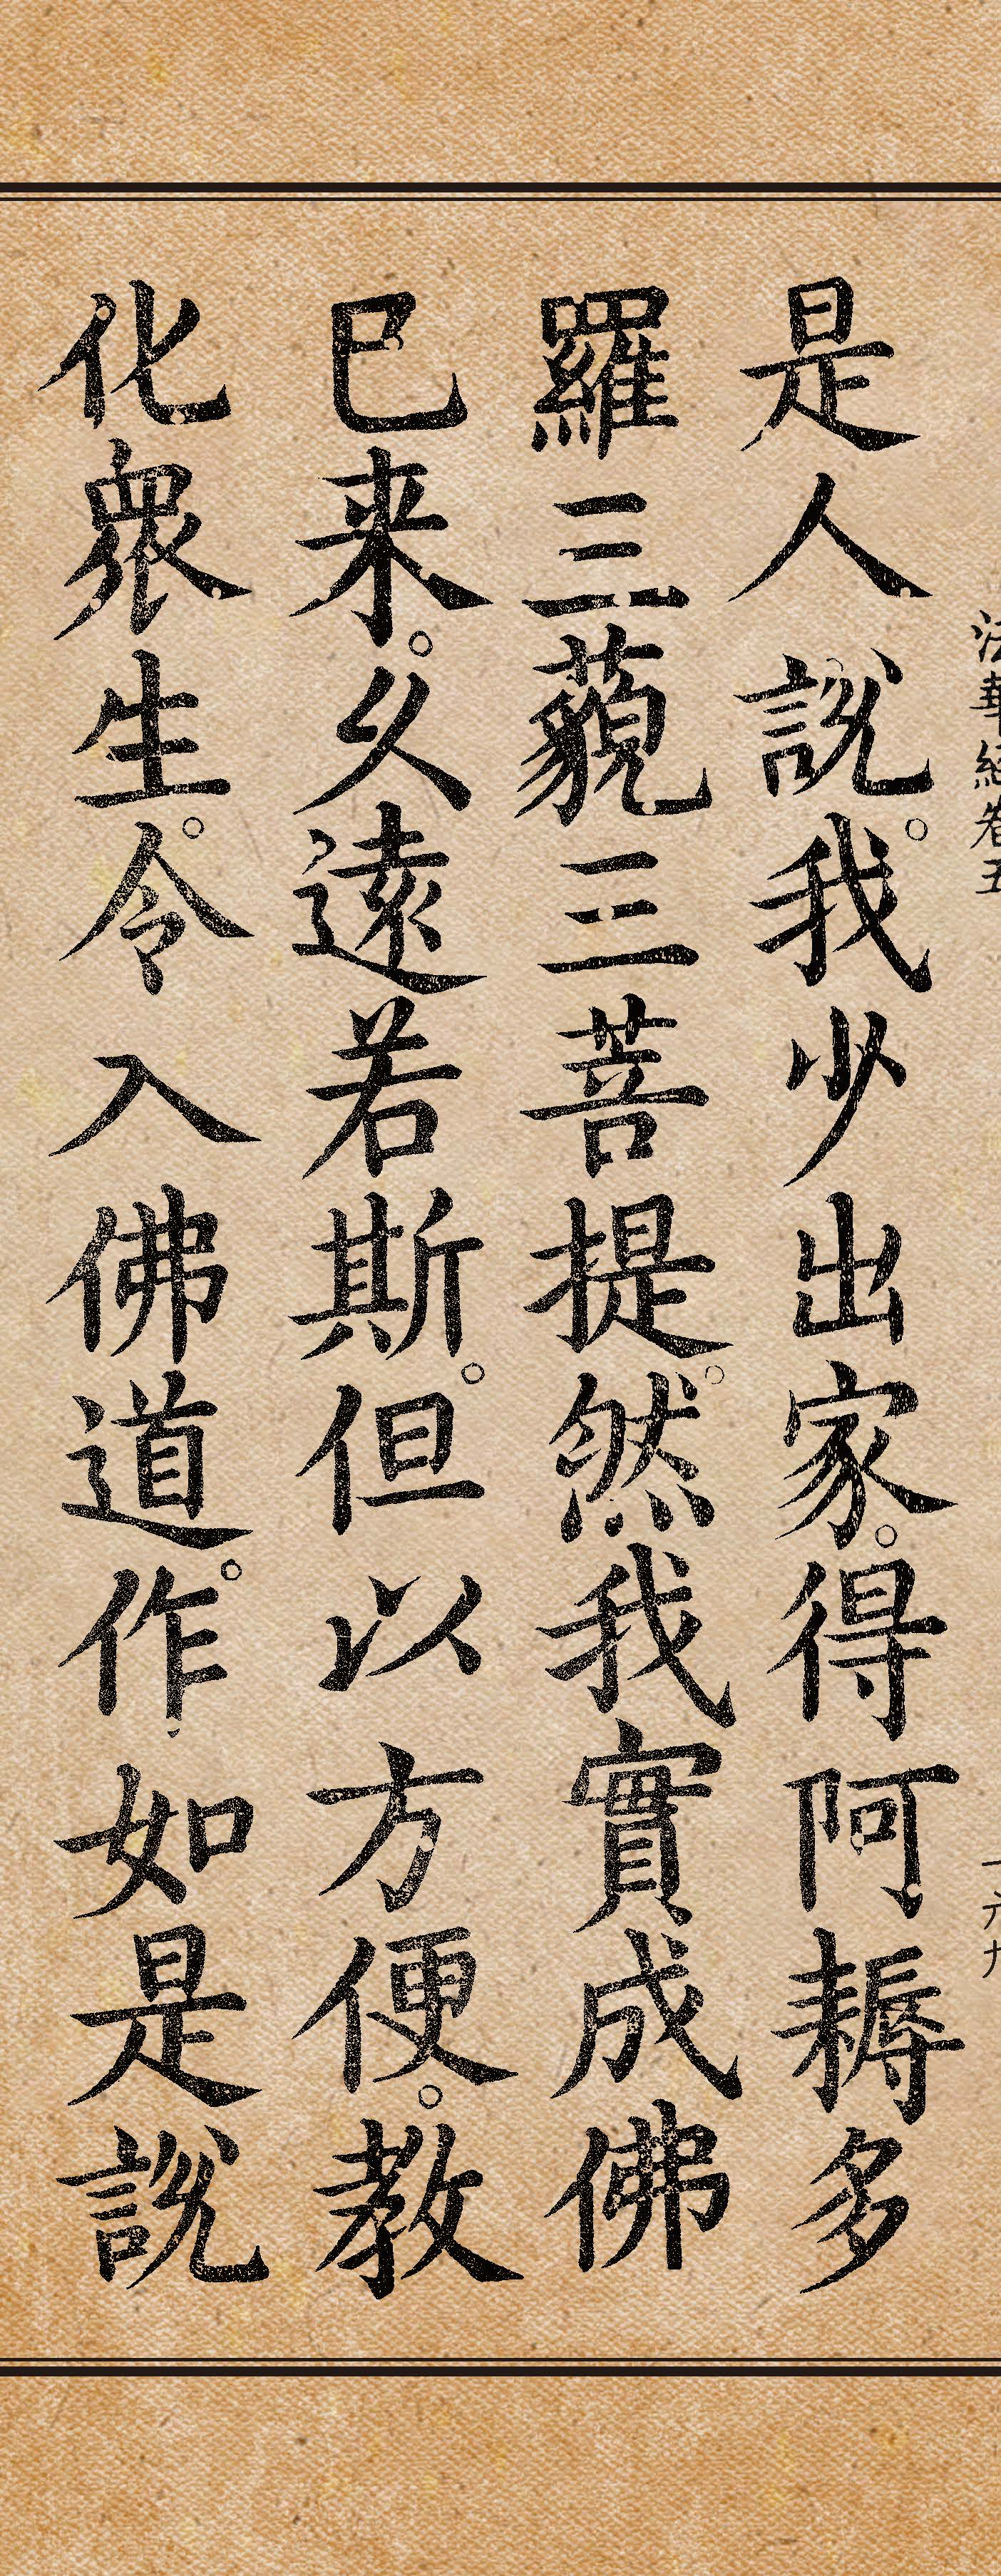 法華經卷五
一六九
是人說。我少出家。得阿耨多
羅三藐三菩提。然我實成佛
已来。久遠若斯。但以方便。教
化眾生。令入佛道。作如是說